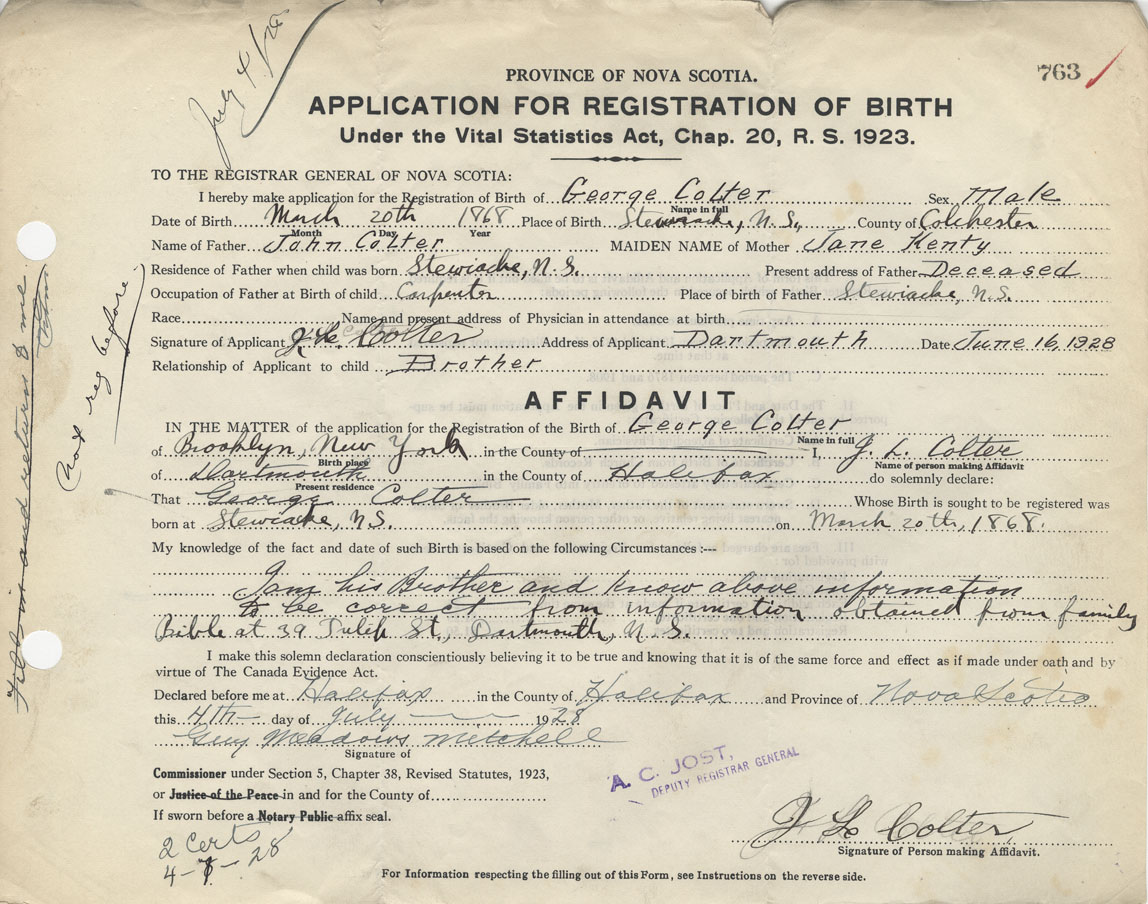 July 4/28
763
PROVINCE OF NOVA SCOTIA.
APPLICATION FOR REGISTRATION OF BIRTH
Under the Vital Statistics Act, Chap. 20, R. S. 1923.
TO THE REGISTRAR GENERAL OF NOVA SCOTIA:
I hereby make application for the Registration of Birth of George Colter Sex Male
Name in full
Date of Birth March 20th 1868 Place of Birth Stewiacke, N. S., County of Colchester
Month Day Year
Name of Father John Colter MAIDEN NAME of Mother Jane Kenty
Residence of Father when child was born Stewiacke, N. S. Present address of Father Deceased
Occupation of Father at Birth of child Carpenter Place of birth of Father Stewiacke, N. S.
Race Name and present address of Physician in attendance at birth
Signature of Applicant J. L. Colter Address of Applicant Dartmouth Date June 16, 1928
Relationship of Applicant to child Brother
AFFIDAVIT
IN THE MATTER of the application for the Registration of the Birth of George Colter
Name in full
of Brooklyn, New York in the County of I, J. L. Colter
Birth place Name of person making Affidavit
of Dartmouth in the County of Halifax do solemnly declare:
Present residence
That George Colter Whose Birth is sought to be registered was
born at Stewiacke, N. S. on March 20th, 1868.
My knowledge of the fact and date of such Birth is based on the following Circumstances :---
I am his Brother and know above information
to be correct from information obtained from family
Bible at 39 Tulip St., Dartmouth, N. S.
I make this solemn declaration conscientiously believing it to be true and knowing that it is of the same force and effect as if made under oath and by
virtue of The Canada Evidence Act.
Declared before me at Halifax in the County of Halifax and Province of Nova Scotia
this 4th day of July 1928
Guy Meadows Mitchell
Signature of
Commissioner under Section 5, Chapter 38, Revised Statutes, 1923,
or Justice of the Peace in and for the County of
If sworn before a Notary Public affix seal.
A. C. JOST,
DEPUTY REGISTRAR GENERAL
J L Colter
Signature of Person making Affidavit.
2 Certs
4-7-28
For Information respecting the filling out of this Form, see Instructions on the reverse side.
(Not reg before)
and return to me